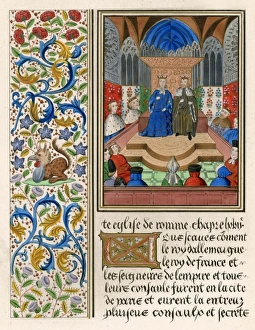 te eglise de romme chapr lxviij
Que jacques coment
le roy dallemaigne
le roy de france et
les seigneurs de lempire et tous
leurs consaulx furent en la cite
de paris et eurent la entreux
plusieurs consaulx et secrete